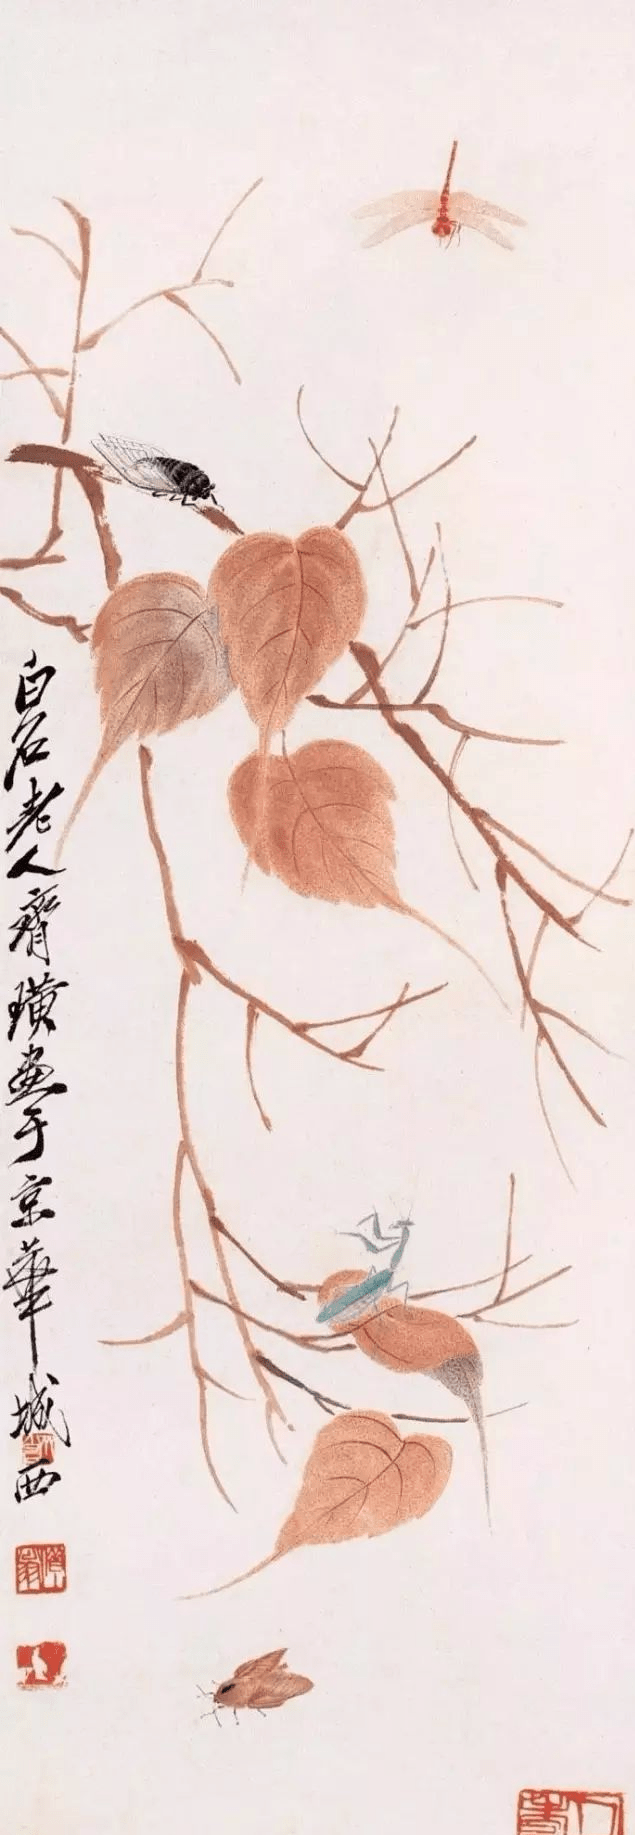 白石老人齊璜画于京華城西